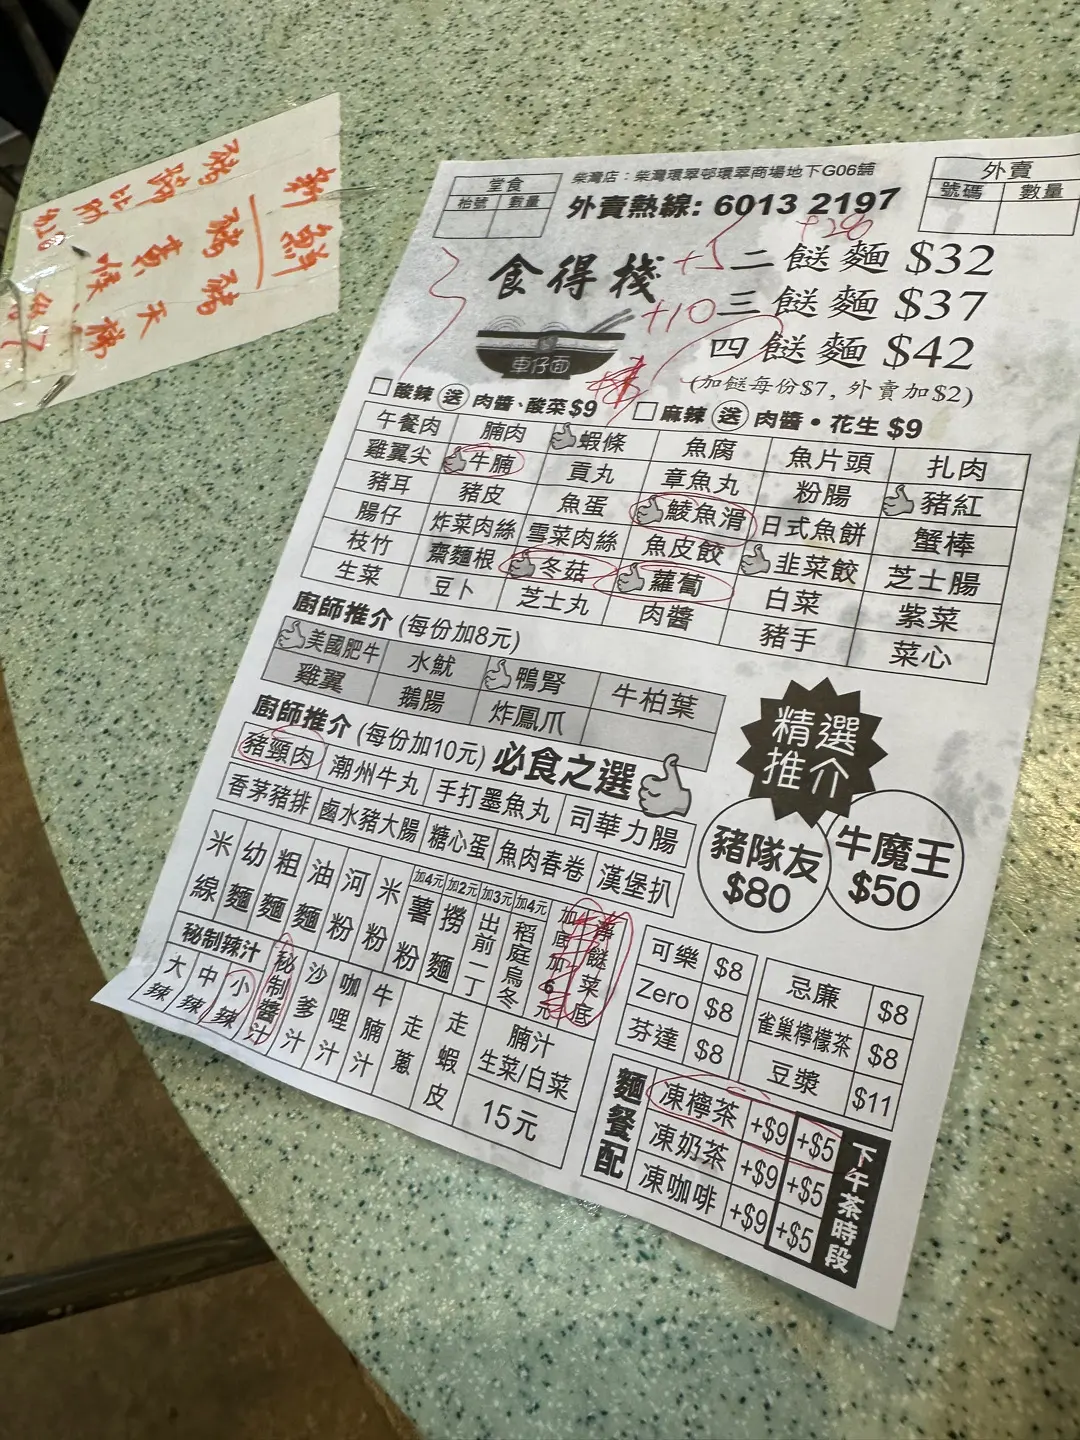 新鮮
豬 豬 豬
蹄 黃 天
喉 梯
堂食
枱號 數量
柴灣店：柴灣環翠邨環翠商場地下G06舖
外賣熱線: 6013 2197
外賣
號碼 數量
食得棧
車仔面
+5 二餸麵 $32
+10 三餸麵 $37
四餸麵 $42
(加餸每份$7, 外賣加$2)
酸辣 送 肉醬、酸菜 $9
麻辣 送 肉醬・花生 $9
午餐肉 腩肉 蝦條 魚腐 魚片頭 扎肉
雞翼尖 牛腩 貢丸 章魚丸 粉腸 豬紅
豬耳 豬皮 魚蛋 鯪魚滑 日式魚餅 蟹棒
腸仔 炸菜肉絲 雪菜肉絲 魚皮餃 韭菜餃 芝士腸
枝竹 齋麵根 冬菇 蘿蔔 白菜 紫菜
生菜 豆卜 芝士丸 肉醬 豬手 菜心
廚師推介 (每份加8元)
美國肥牛 水魷 鴨腎 牛柏葉
雞翼 鵝腸 炸鳳爪
廚師推介 (每份加10元) 必食之選
豬頸肉 潮州牛丸 手打墨魚丸 司華力腸
香茅豬排 鹵水豬大腸 糖心蛋 魚肉春卷 漢堡扒
精選推介
豬隊友 $80
牛魔王 $50
米線 幼麵 粗麵 油麵 河粉 米粉 加4元 薯粉 加2元 撈麵 加3元 出前一丁 加4元 稻庭烏冬
加底加6元 淨餸菜底
秘制辣汁
大辣 中辣 小辣 秘制醬汁 沙爹汁 咖哩汁 牛腩汁 走蔥 走蝦皮
腩汁
生菜/白菜
15元
可樂 $8
Zero $8
芬達 $8
忌廉 $8
雀巢檸檬茶 $8
豆漿 $11
麵餐配
凍檸茶 +$9 +$5
凍奶茶 +$9 +$5
凍咖啡 +$9 +$5
下午茶時段